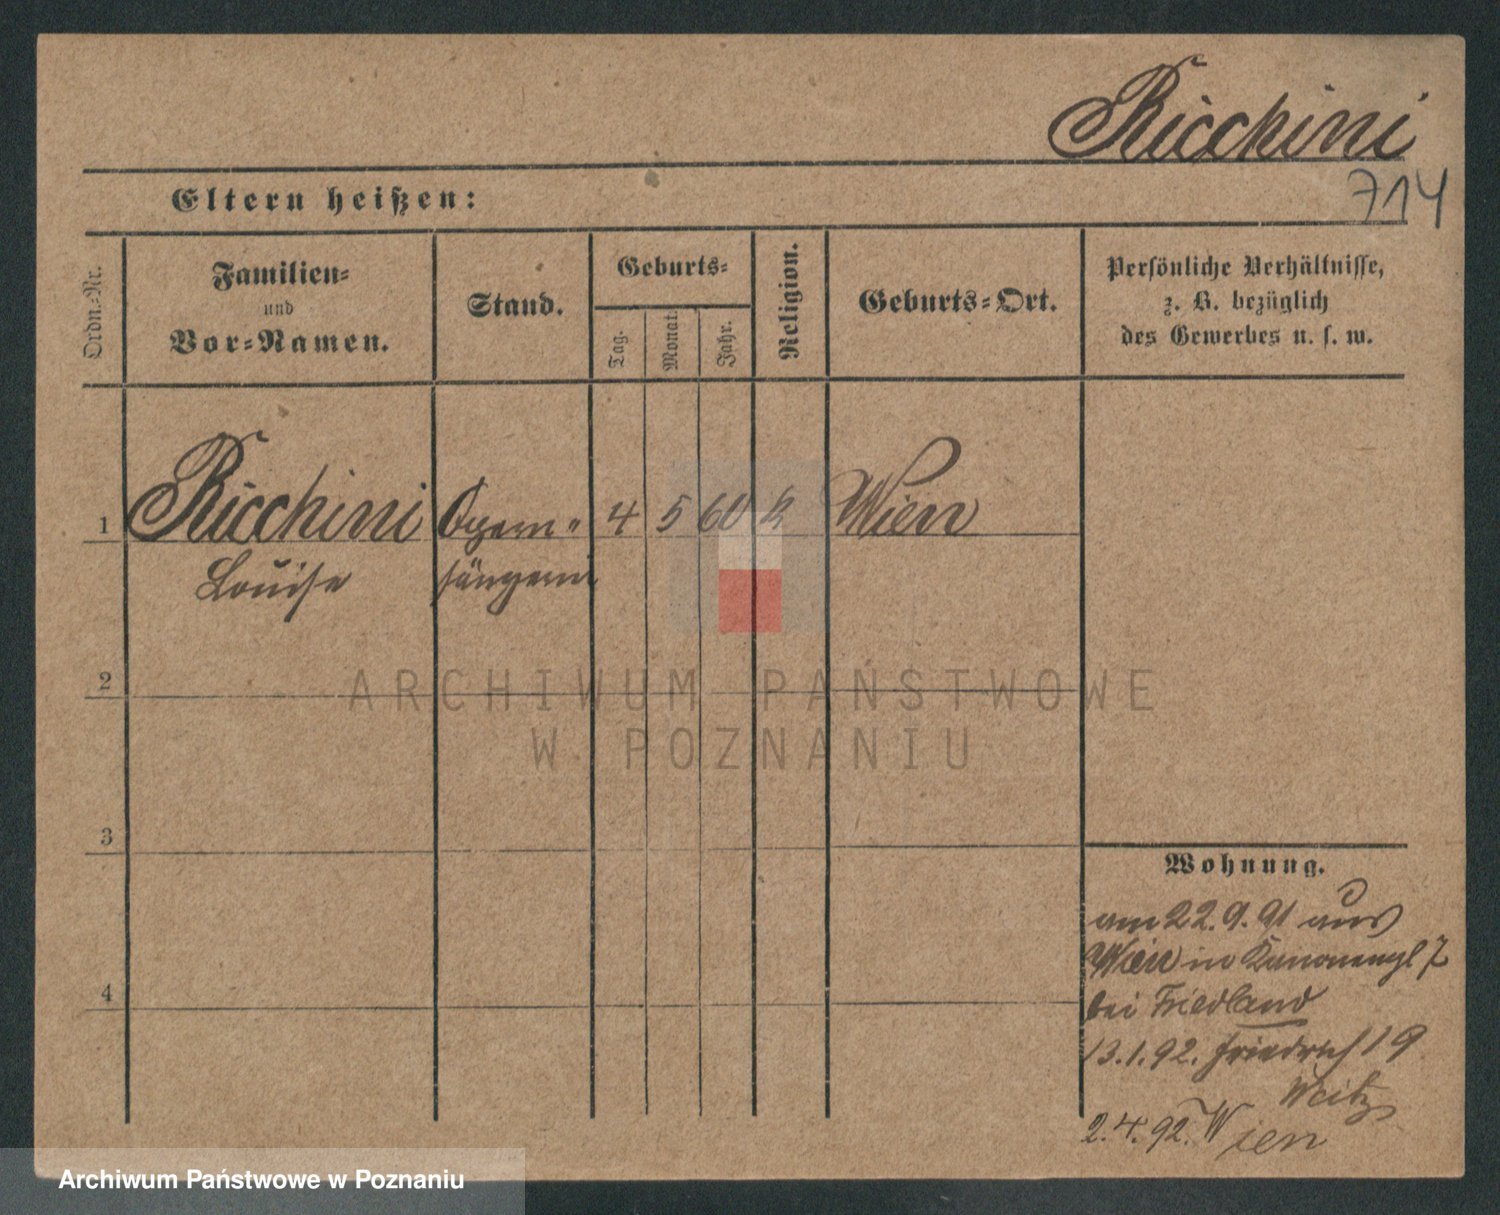 Ricchini
714
Eltern heißen:
Ordn.-Nr.
Familien-
und
Vor-Namen.
Stand.
Geburts-
Tag.
Monat.
Jahr.
Religion.
Geburts-Ort.
Persönliche Verhältnisse,
z. B. bezüglich
des Gewerbes u. s. w.
1 Ricchini Opern- 4 5 60 k Wien
Louise sängerin
2
3
4
ARCHIWUM PAŃSTWOWE
W POZNANIU
Wohnung.
am 22.9.91 aus
Wien in Kanonenpl 7
bei Friedland
13.1.92. Friedrich 19
Weitz
2.4.92. Wien
Archiwum Państwowe w Poznaniu